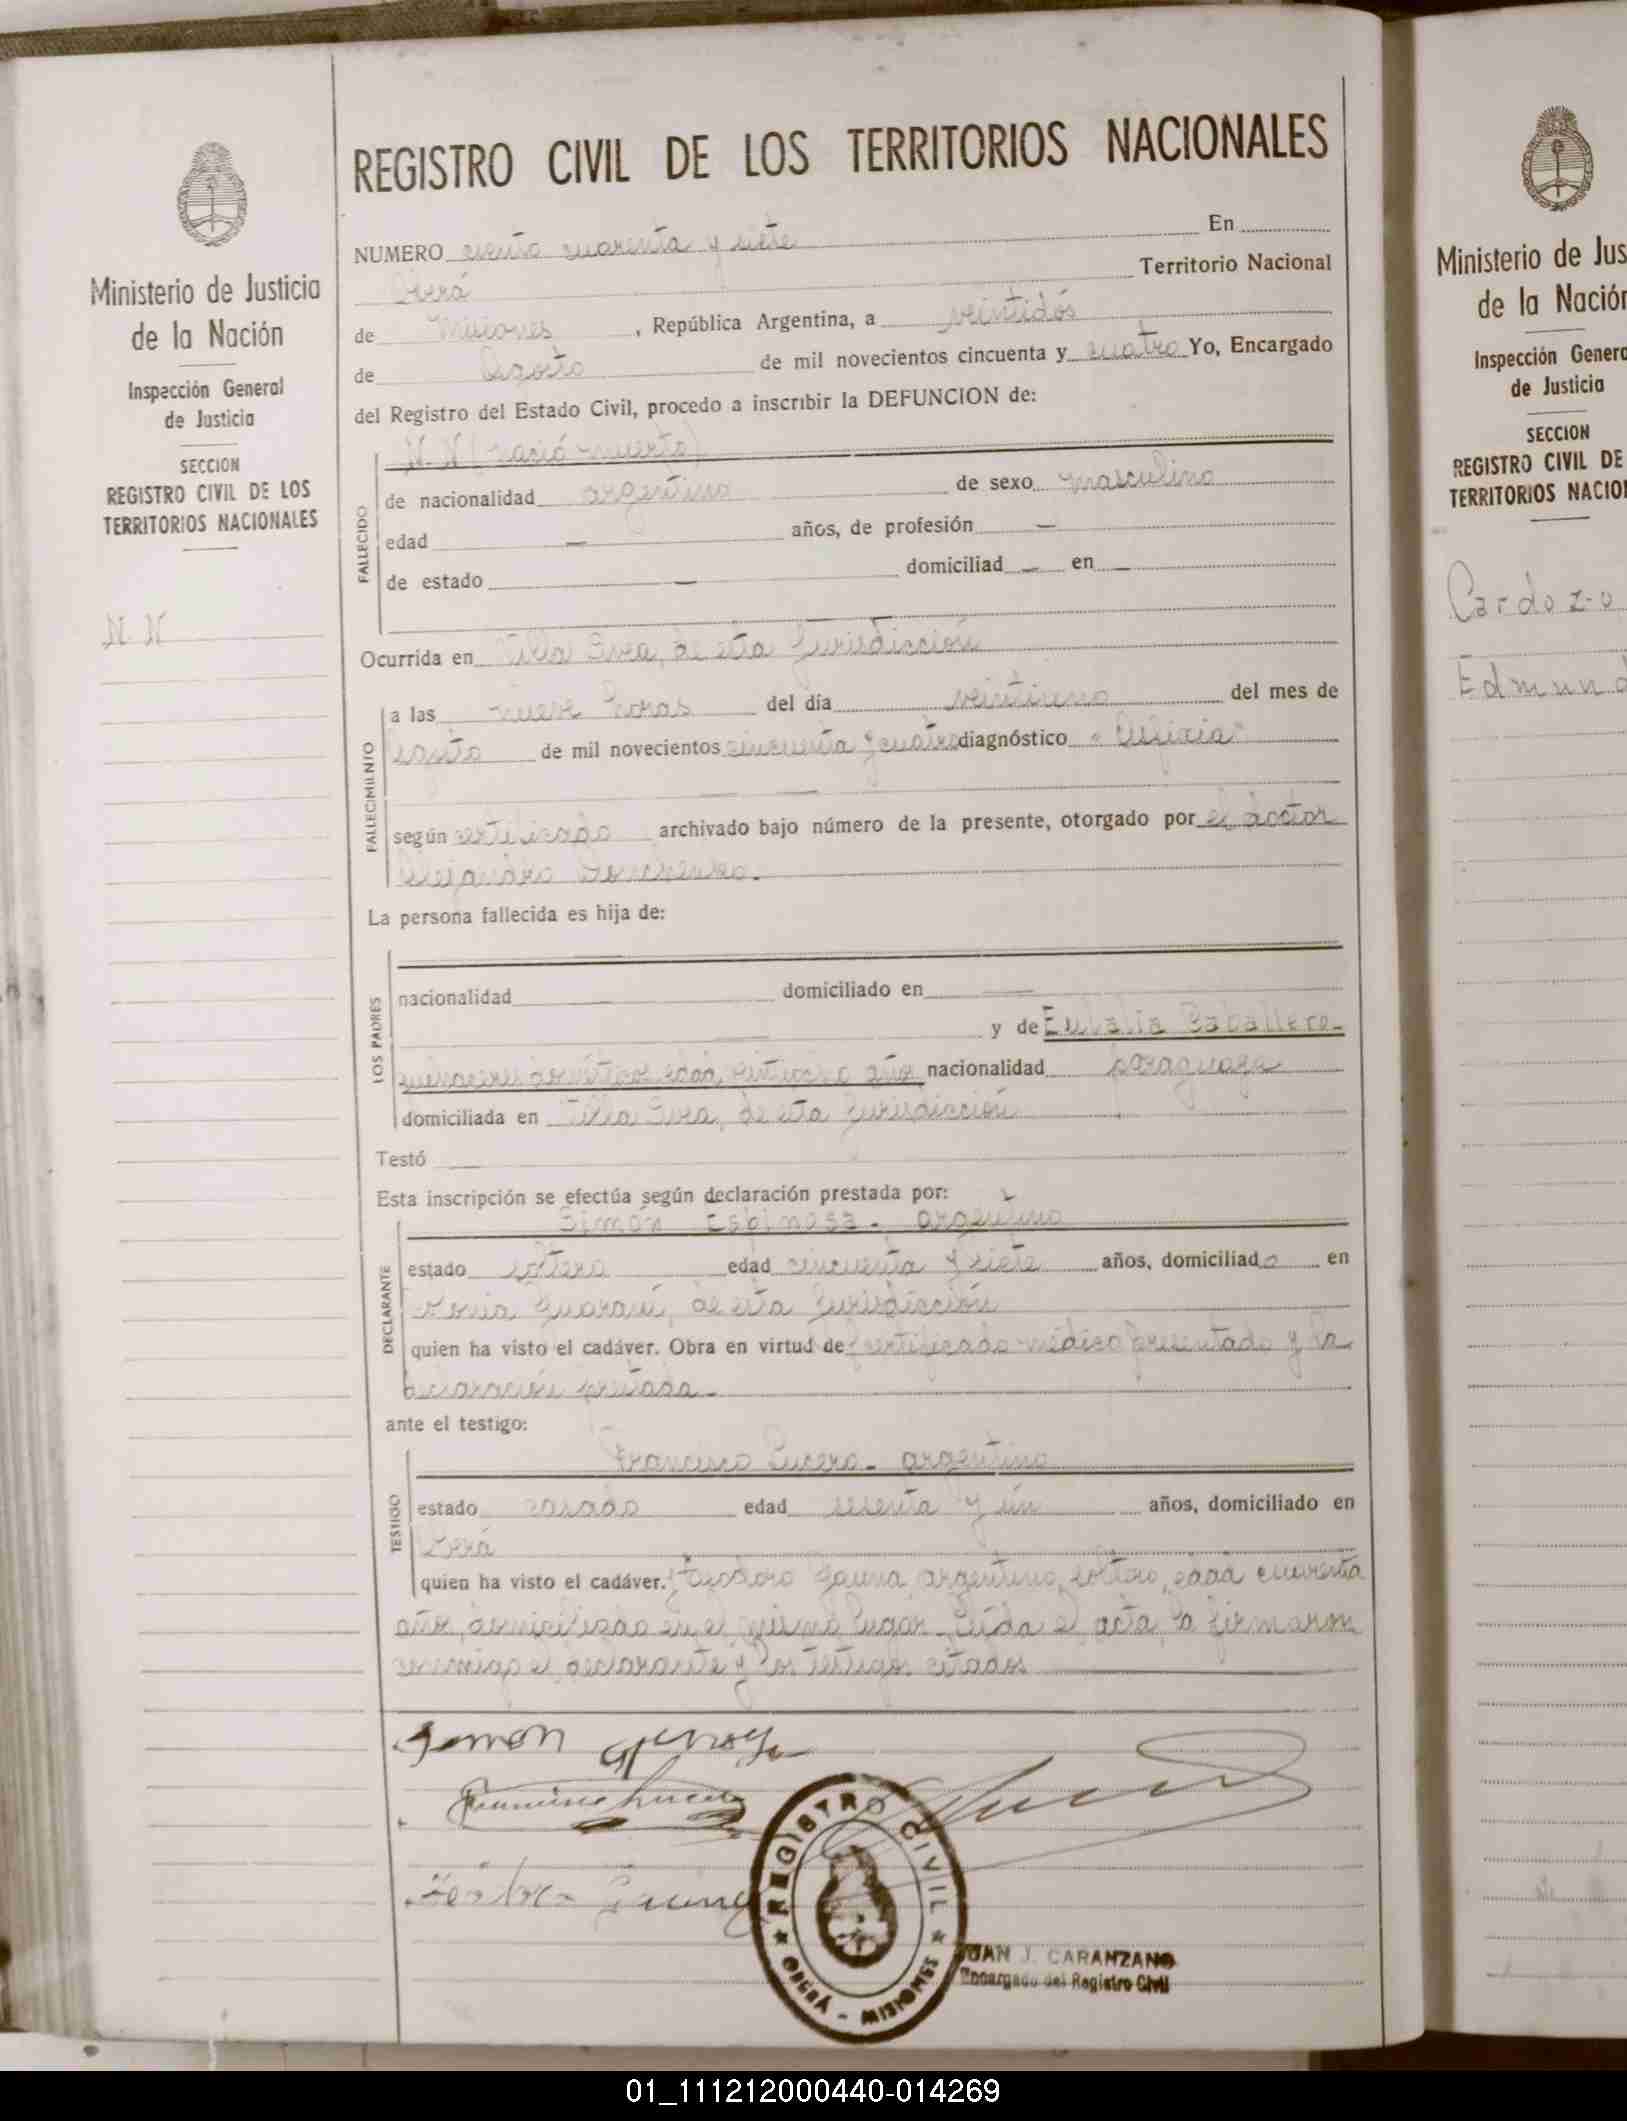 Ministerio de Justicia
de la Nación
Inspección General
de Justicia
SECCION
REGISTRO CIVIL DE LOS
TERRITORIOS NACIONALES
N. N
REGISTRO CIVIL DE LOS TERRITORIOS NACIONALES
NUMERO ciento cuarenta y siete En
Oberá Territorio Nacional
de Misiones, República Argentina, a veintidós
de Agosto de mil novecientos cincuenta y cuatro Yo, Encargado
del Registro del Estado Civil, procedo a inscribir la DEFUNCION de:
N. N (nació muerto)
FALLECIDO
de nacionalidad argentino de sexo masculino
edad — años, de profesión —
de estado — domiciliad — en —
Ocurrida en Villa Svea, de esta Jurisdicción
FALLECIMIENTO
a las nueve horas del día veintiuno del mes de
agosto de mil novecientos cincuenta y cuatro diagnóstico "Asfixia"
según certificado archivado bajo número de la presente, otorgado por el doctor
Alejandro
La persona fallecida es hija de:
LOS PADRES
nacionalidad — domiciliado en —
y de Eulalia Caballero-
edad años nacionalidad paraguaya
domiciliada en Villa Svea, de esta Jurisdicción
Testó —
Esta inscripción se efectúa según declaración prestada por:
DECLARANTE
Simón Espinosa - argentino
estado soltero edad cincuenta y siete años, domiciliado en
Colonia Guaraní, de esta Jurisdicción
quien ha visto el cadáver. Obra en virtud de certificado médico presentado y la
declaración prestada-
ante el testigo:
TESTIGO
Francisco Lucero- argentino
estado casado edad sesenta y un años, domiciliado en
Oberá
quien ha visto el cadáver. y Teodoro Gauna, argentino, soltero, edad cuarenta
años, domiciliado en el mismo lugar. Leída el acta, la firmaron
conmigo el declarante y los testigos citados
REGISTRO CIVIL
OBERÁ - MISIONES
JUAN J. CARANZANO
Encargado del Registro Civil
Ministerio de Jus
de la Nación
Inspección Genera
de Justicia
SECCION
REGISTRO CIVIL DE
TERRITORIOS NACIO
Cardozo
Edmund
01_111212000440-014269